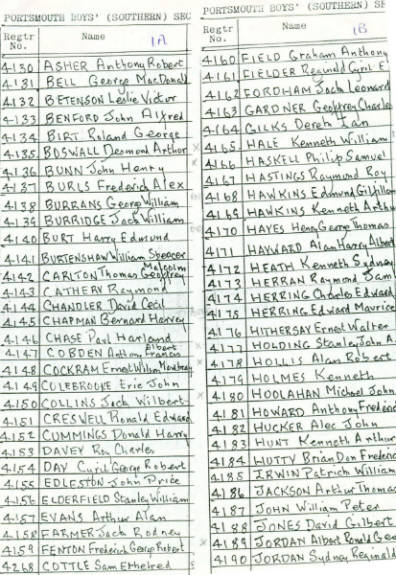 PORTSMOUTH BOYS' (SOUTHERN) SEC
Regtr No. Name 1A
4130 ASHER Anthony Robert
4131 BELL George MacDonald
4132 BETENSON Leslie Victor
4133 BENFORD John Alfred
4134 BIRT Roland George
4135 BOSWALL Desmond Arthur
4136 BUNN John Henry
4137 BURLS Frederick Alex
4138 BURRANS George William
4139 BURRIDGE Jack William
4140 BURT Harry Edmund
4141 BURTENSHAW William Spencer
4142 CARLTON Thomas Geoffrey Malcolm
4143 CATHERY Raymond
4144 CHANDLER David Cecil
4145 CHAPMAN Bernard Harvey
4146 CHASE Paul Harland
4147 COBDEN Anthony Albert Francis
4148 COCKRAM Ernest Wilson
4149 COLEBROOKE Eric John
4150 COLLINS Jack Wilbert
4151 CRESWELL Ronald Edward
4152 CUMMINGS Donald Harry
4153 DAVEY Roy Charles
4154 DAY Cyril George Robert
4155 EDLESTON John Price
4156 ELDERFIELD Stanley William
4157 EVANS Arthur Alan
4158 FARMER Jack Rodney
4159 FENTON Frederick George Robert
4268 COTTLE Sam Ethelred
PORTSMOUTH BOYS' (SOUTHERN) SE
Regtr No. Name 1B
4160 FIELD Graham Anthony
4161 FIELDER Reginald Cyril E
4162 FORDHAM Jack Leonard
4163 GARDNER Geoffrey Charles
4164 GILKS Derek Ian
4165 HALE Kenneth William
4166 HASKELL Philip Samuel
4167 HASTINGS Raymond Roy
4168 HAWKINS Edmund
4169 HAWKINS Kenneth Arthu
4170 HAYES Henry George Thomas
4171 HAYWARD Alan Harry Albert
4172 HEATH Kenneth Sydney
4173 HERRAN Raymond Sam
4174 HERRING Charles Edward
4175 HERRING Edward Maurice
4176 HITHERSAY Ernest Walter
4177 HOLDING Stanley John A.
4178 HOLLIS Alan Robert
4179 HOLMES Kenneth
4180 HOOLAHAN Michael John
4181 HOWARD Anthony Frederic
4182 HUCKER Alec John
4183 HUNT Kenneth Arthur
4184 HUTTY Brian Don Frederic
4185 IRWIN Patrick William
4186 JACKSON Arthur Thomas
4187 JOHN William Peter
4188 JONES David Gilbert
4189 JORDAN Albert Ronald Geo
4190 JORDAN Sydney Reginald